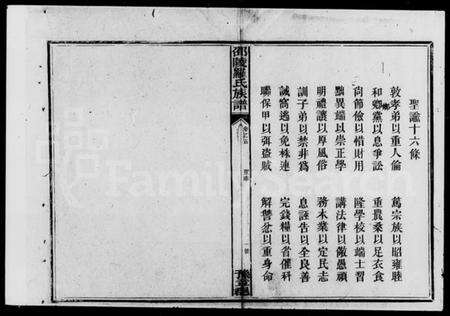 聖諭十六條
敦孝弟以重人倫 篤宗族以昭雍睦
和鄉黨以息爭訟 重農桑以足衣食
尚節儉以惜財用 隆學校以端士習
黜異端以崇正學 講法律以儆愚頑
明禮讓以厚風俗 務本業以定民志
訓子弟以禁非為 息誣告以全良善
誡窩逃以免株連 完錢糧以省催科
聯保甲以弭盜賊 解讐忿以重身命
邵陵羅氏族譜
卷之五
豫章堂
FamilySearch